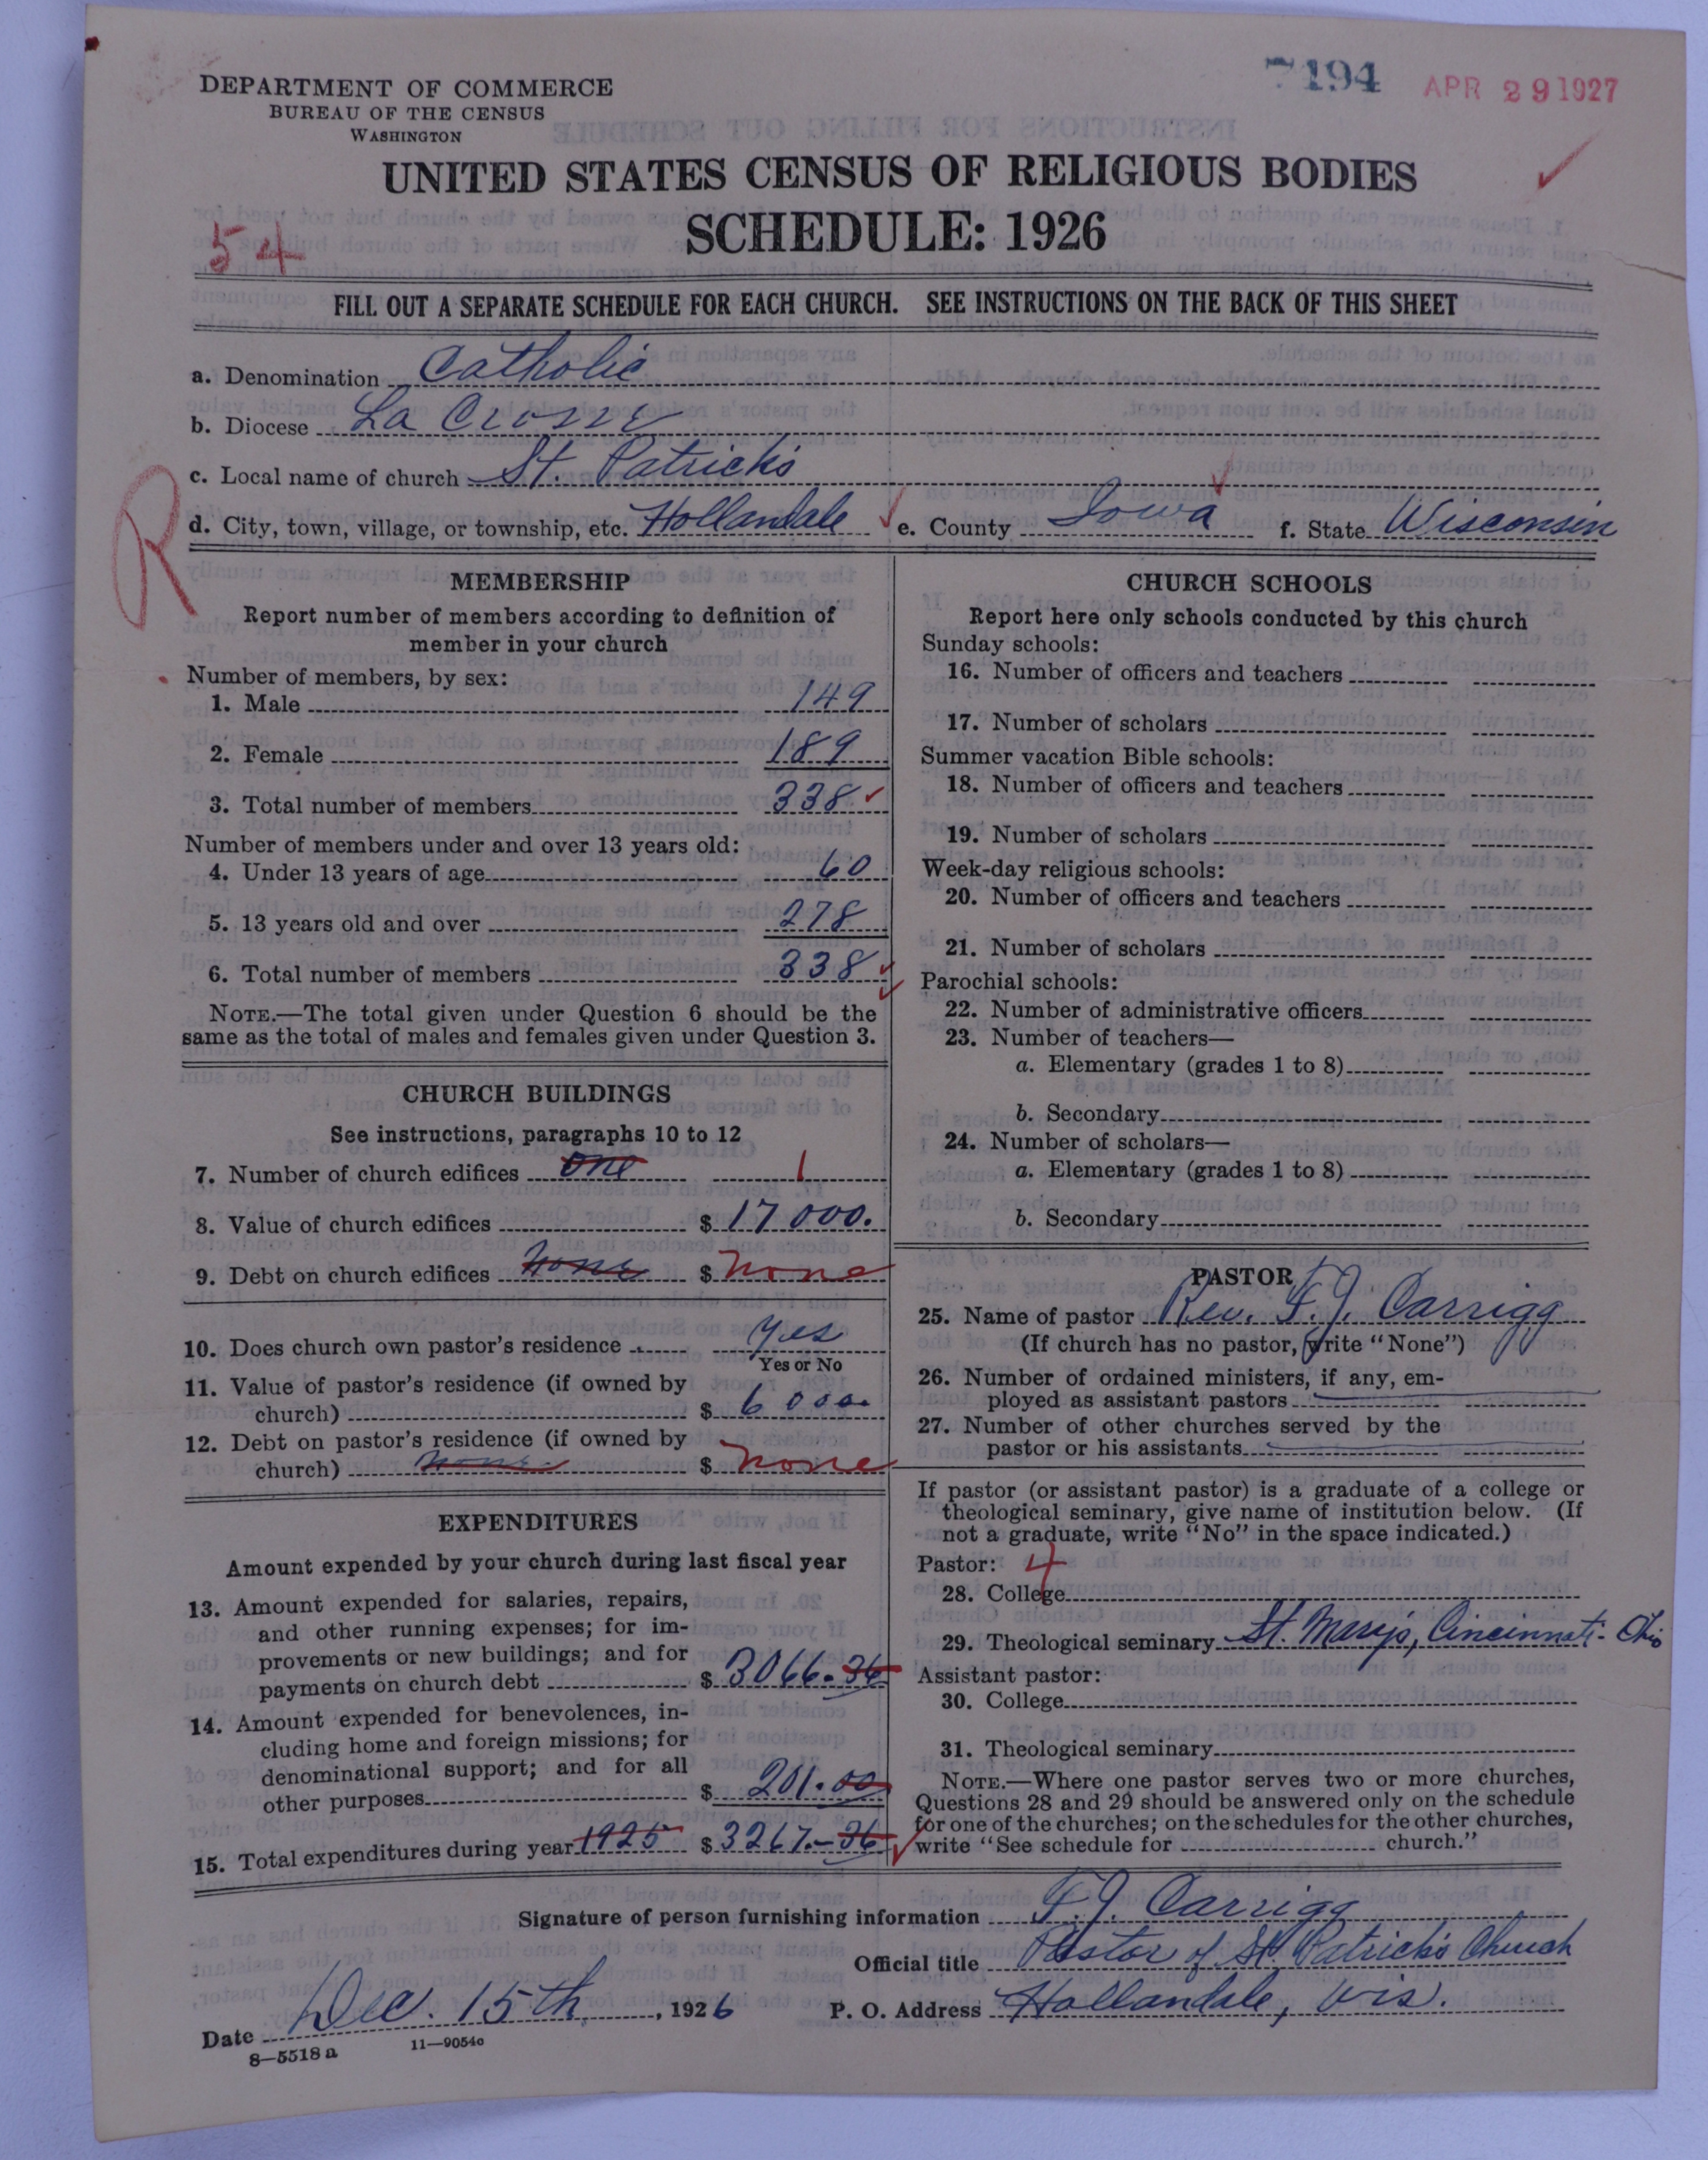 7194 APR 29 1927
DEPARTMENT OF COMMERCE
BUREAU OF THE CENSUS
WASHINGTON
UNITED STATES CENSUS OF RELIGIOUS BODIES
SCHEDULE: 1926
54
FILL OUT A SEPARATE SCHEDULE FOR EACH CHURCH. SEE INSTRUCTIONS ON THE BACK OF THIS SHEET
a. Denomination Catholic
b. Diocese La Crosse
c. Local name of church St. Patrick's
d. City, town, village, or township, etc. Hollandale e. County Iowa f. State Wisconsin
R
MEMBERSHIP
Report number of members according to definition of
member in your church
Number of members, by sex:
1. Male 149
2. Female 189
3. Total number of members 338
Number of members under and over 13 years old:
4. Under 13 years of age 60
5. 13 years old and over 278
6. Total number of members 338
NOTE.—The total given under Question 6 should be the
same as the total of males and females given under Question 3.
CHURCH BUILDINGS
See instructions, paragraphs 10 to 12
7. Number of church edifices one 1
8. Value of church edifices $ 17000.
9. Debt on church edifices none $ none
10. Does church own pastor's residence yes
Yes or No
11. Value of pastor's residence (if owned by
church) $ 6000.
12. Debt on pastor's residence (if owned by
church) none $ none
EXPENDITURES
Amount expended by your church during last fiscal year
13. Amount expended for salaries, repairs,
and other running expenses; for im-
provements or new buildings; and for
payments on church debt $ 3066.36
14. Amount expended for benevolences, in-
cluding home and foreign missions; for
denominational support; and for all
other purposes $ 201.00
15. Total expenditures during year 1925 $ 3267.-36
CHURCH SCHOOLS
Report here only schools conducted by this church
Sunday schools:
16. Number of officers and teachers
17. Number of scholars
Summer vacation Bible schools:
18. Number of officers and teachers
19. Number of scholars
Week-day religious schools:
20. Number of officers and teachers
21. Number of scholars
Parochial schools:
22. Number of administrative officers
23. Number of teachers—
a. Elementary (grades 1 to 8)
b. Secondary
24. Number of scholars—
a. Elementary (grades 1 to 8)
b. Secondary
PASTOR
25. Name of pastor Rev. F. J. Carrigg
(If church has no pastor, write "None")
26. Number of ordained ministers, if any, em-
ployed as assistant pastors
27. Number of other churches served by the
pastor or his assistants
If pastor (or assistant pastor) is a graduate of a college or
theological seminary, give name of institution below. (If
not a graduate, write "No" in the space indicated.)
Pastor: 4
28. College
29. Theological seminary St. Marys, Cincinnati - Ohio
Assistant pastor:
30. College
31. Theological seminary
NOTE.—Where one pastor serves two or more churches,
Questions 28 and 29 should be answered only on the schedule
for one of the churches; on the schedules for the other churches,
write "See schedule for church."
Signature of person furnishing information F. J. Carrigg
Official title Pastor of St. Patrick's Church
Date Dec. 15th, 1926 P. O. Address Hollandale, Wis.
8—5518 a 11—9054c